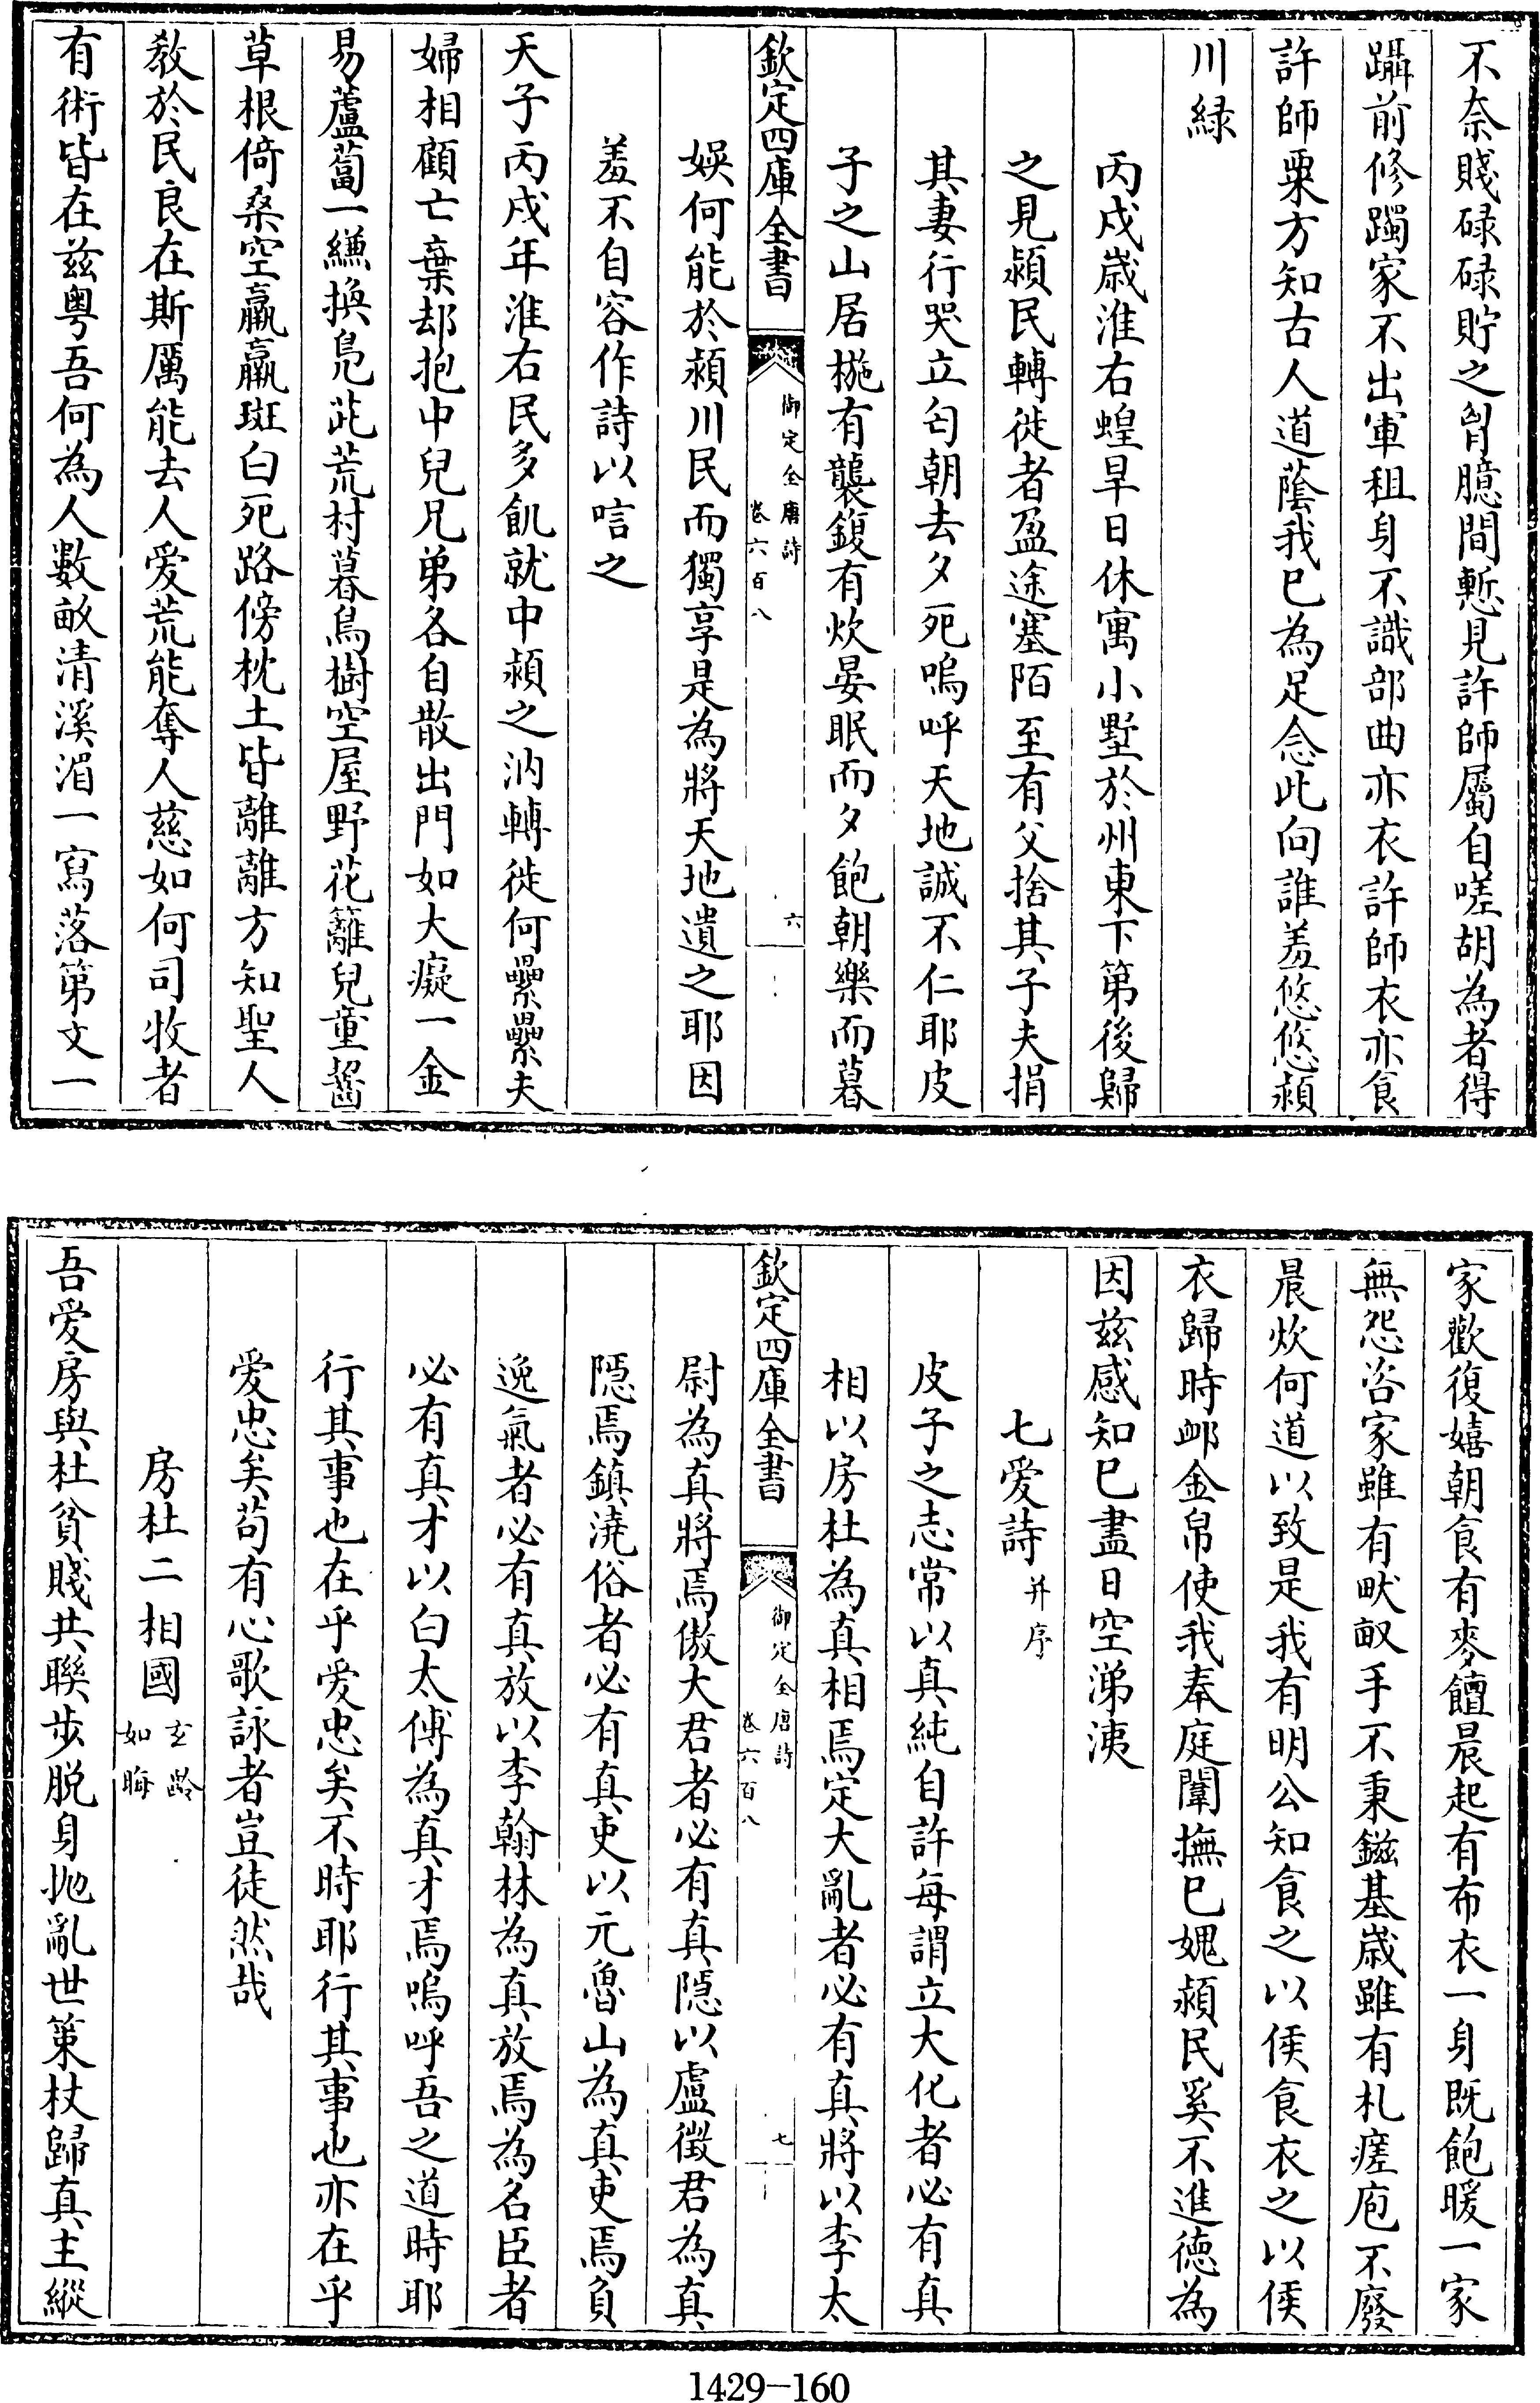 不奈賤碌碌貯之胷臆間慙見許師屬自嗟胡為者得
躡前修躅家不出軍租身不識部曲亦衣許師衣亦食
許師粟方知古人道蔭我已為足念此向誰羞悠悠潁
川緑
丙戌歲淮右蝗旱日休寓小墅於州東下第後歸
之見潁民轉徙者盈途塞陌至有父捨其子夫捐
其妻行哭立匃朝去夕死嗚呼天地誠不仁耶皮
子之山居椸有襲鍑有炊晏眠而夕飽朝樂而暮
欽定四庫全書
御定全唐詩
卷六百八
六
娱何能於潁川民而獨享是為將天地遺之耶因
羞不自容作詩以唁之
天子丙戌年淮右民多飢就中潁之汭轉徙何纍纍夫
婦相顧亡棄却抱中兒兄弟各自散出門如大癡一金
易蘆蔔一縑換鳧茈荒村暮鳥樹空屋野花籬兒童齧
草根倚桑空羸羸斑白死路傍枕土皆離離方知聖人
敎於民良在斯厲能去人愛荒能奪人慈如何司牧者
有術皆在兹粤吾何為人數畝清溪湄一寫落第文一
家歡復嬉朝食有麥饘晨起有布衣一身既飽暖一家
無怨咨家雖有畎畝手不秉鎡基歲雖有札瘥庖不廢
晨炊何道以致是我有明公知食之以侯食衣之以侯
衣歸時卹金帛使我奉庭闈撫已媿潁民奚不進德為
因兹感知已盡日空涕洟
七愛詩并序
皮子之志常以真純自許每謂立大化者必有真
相以房杜為真相焉定大亂者必有真將以李太
欽定四庫全書
御定全唐詩
卷六百八
七
尉為真將焉傲大君者必有真隱以盧徵君為真
隱焉鎮澆俗者必有真吏以元魯山為真吏焉負
逸氣者必有真放以李翰林為真放焉為名臣者
必有真才以白太傅為真才焉嗚呼吾之道時耶
行其事也在乎愛忠矣不時耶行其事也亦在乎
愛忠矣苟有心歌詠者豈徒然哉
房杜二相國玄齡如晦
吾愛房與杜貧賤共聯步脱身抛亂世策杖歸真主縱
1429-160